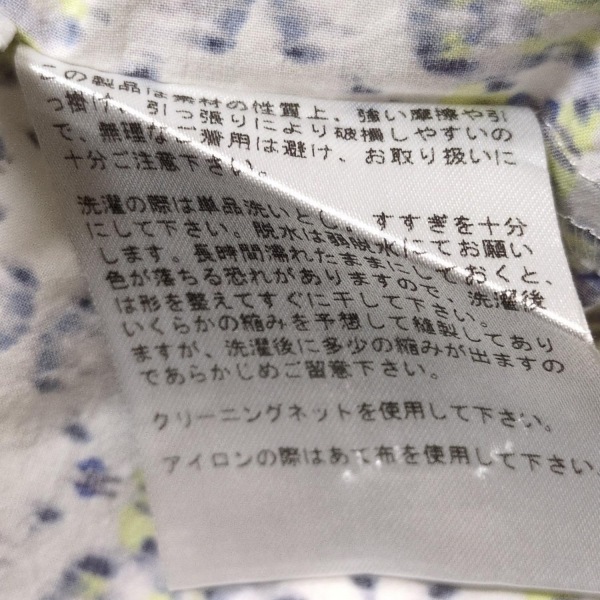 この製品は素材の性質上、強い摩擦や引
っ掛け、引っ張りにより破損しやすいの
で、無理なご着用は避け、お取り扱いに
十分ご注意下さい。
洗濯の際は単品洗いとし、すすぎを十分
にして下さい。脱水は弱脱水にてお願い
します。長時間濡れたままにしておくと、
色が落ちる恐れがありますので、洗濯後
は形を整えてすぐに干して下さい。
いくらかの縮みを予想して縫製してあり
ますが、洗濯後に多少の縮みが出ますの
であらかじめご留意下さい。
クリーニングネットを使用して下さい。
アイロンの際はあて布を使用して下さい。